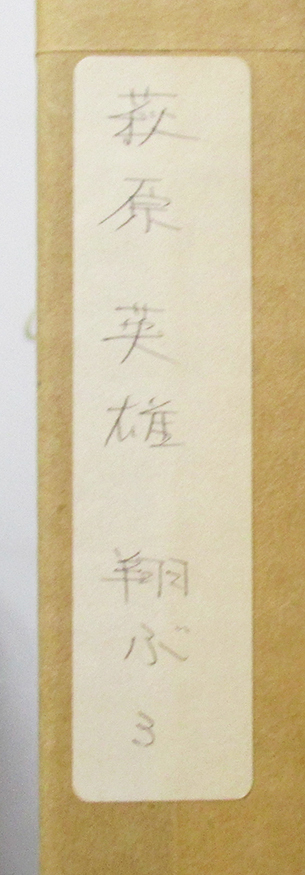 萩原 英雄 翔ぶ 3